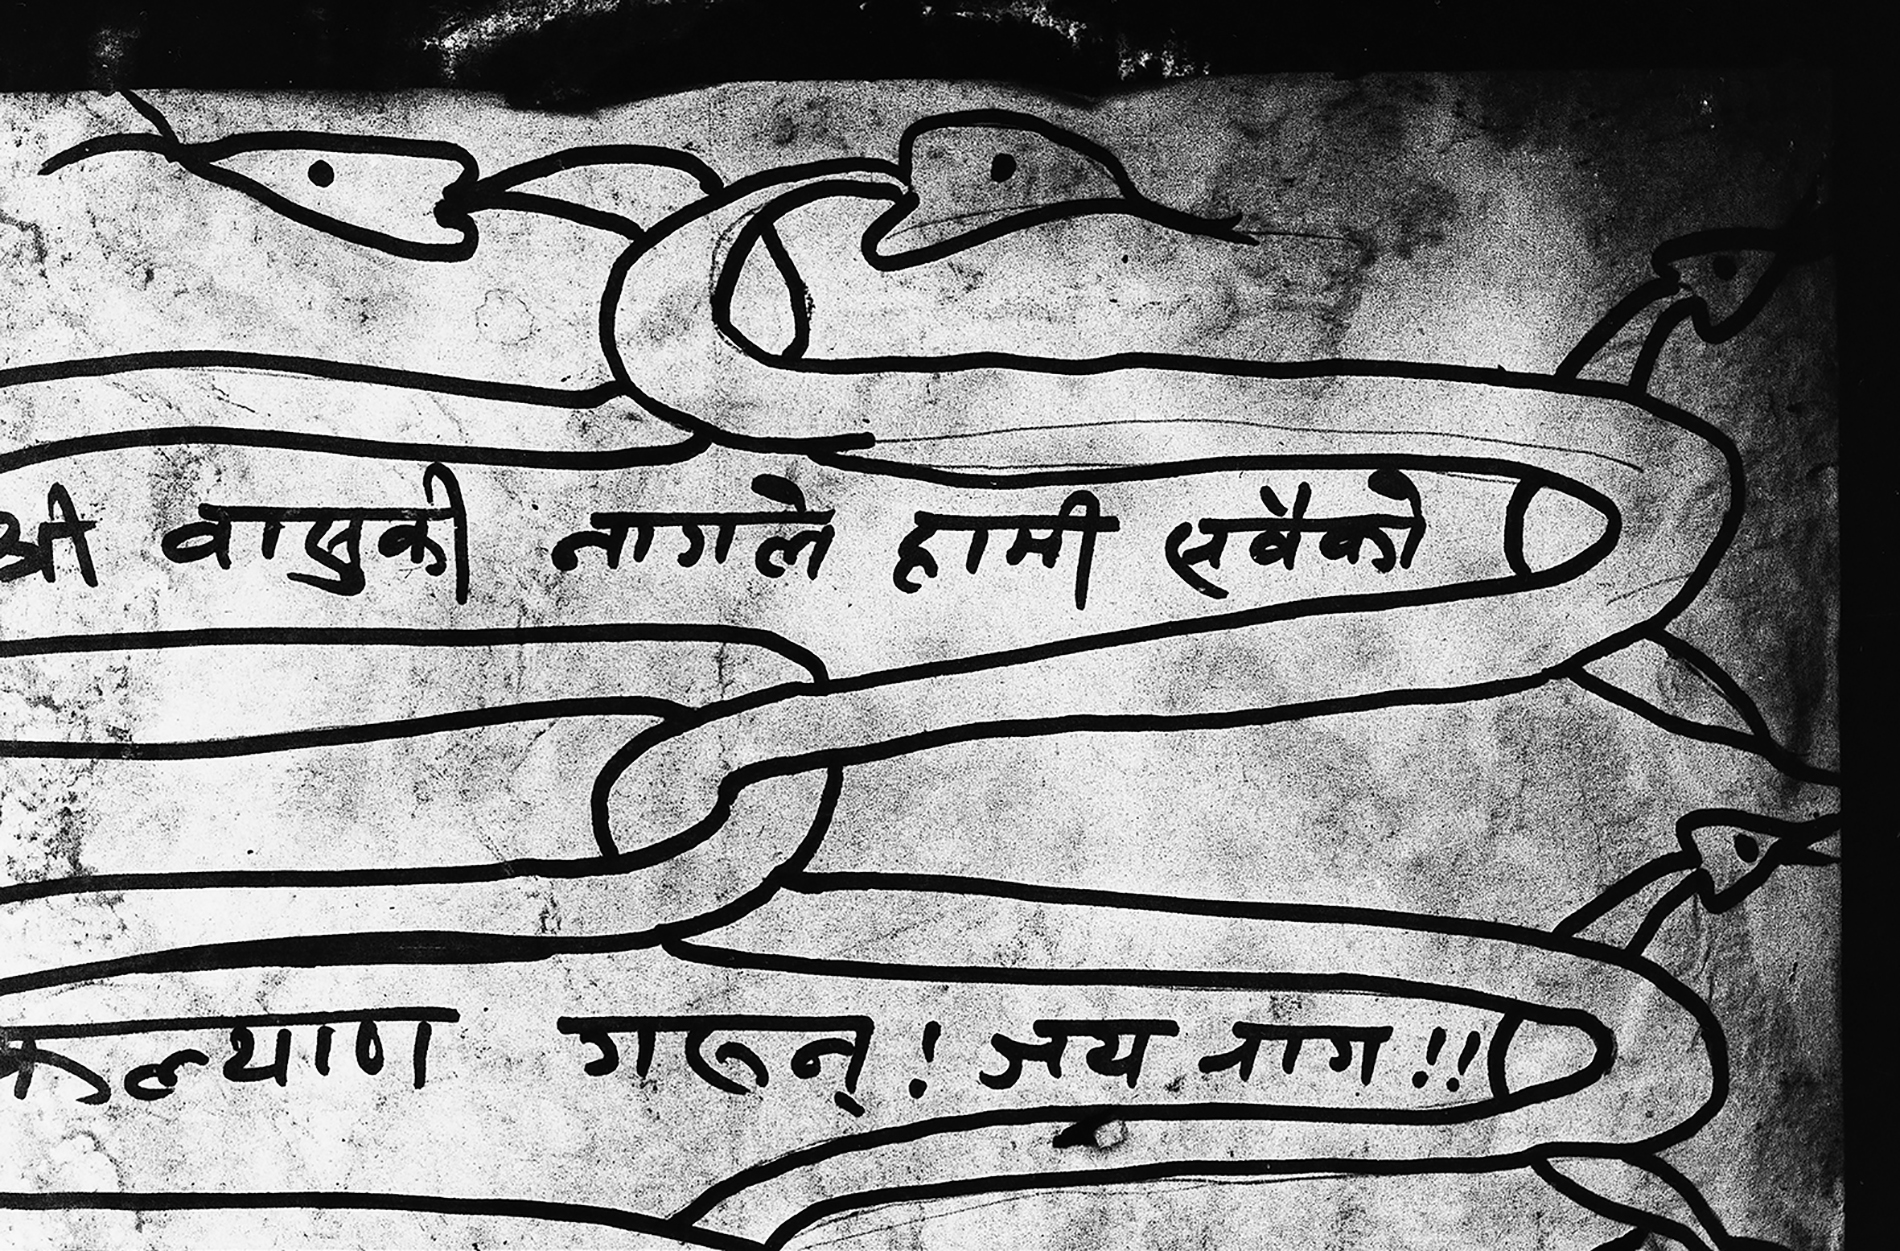 श्री वासुकी नागले हामी सबैको
कल्याण गरून् ! जय नाग !!